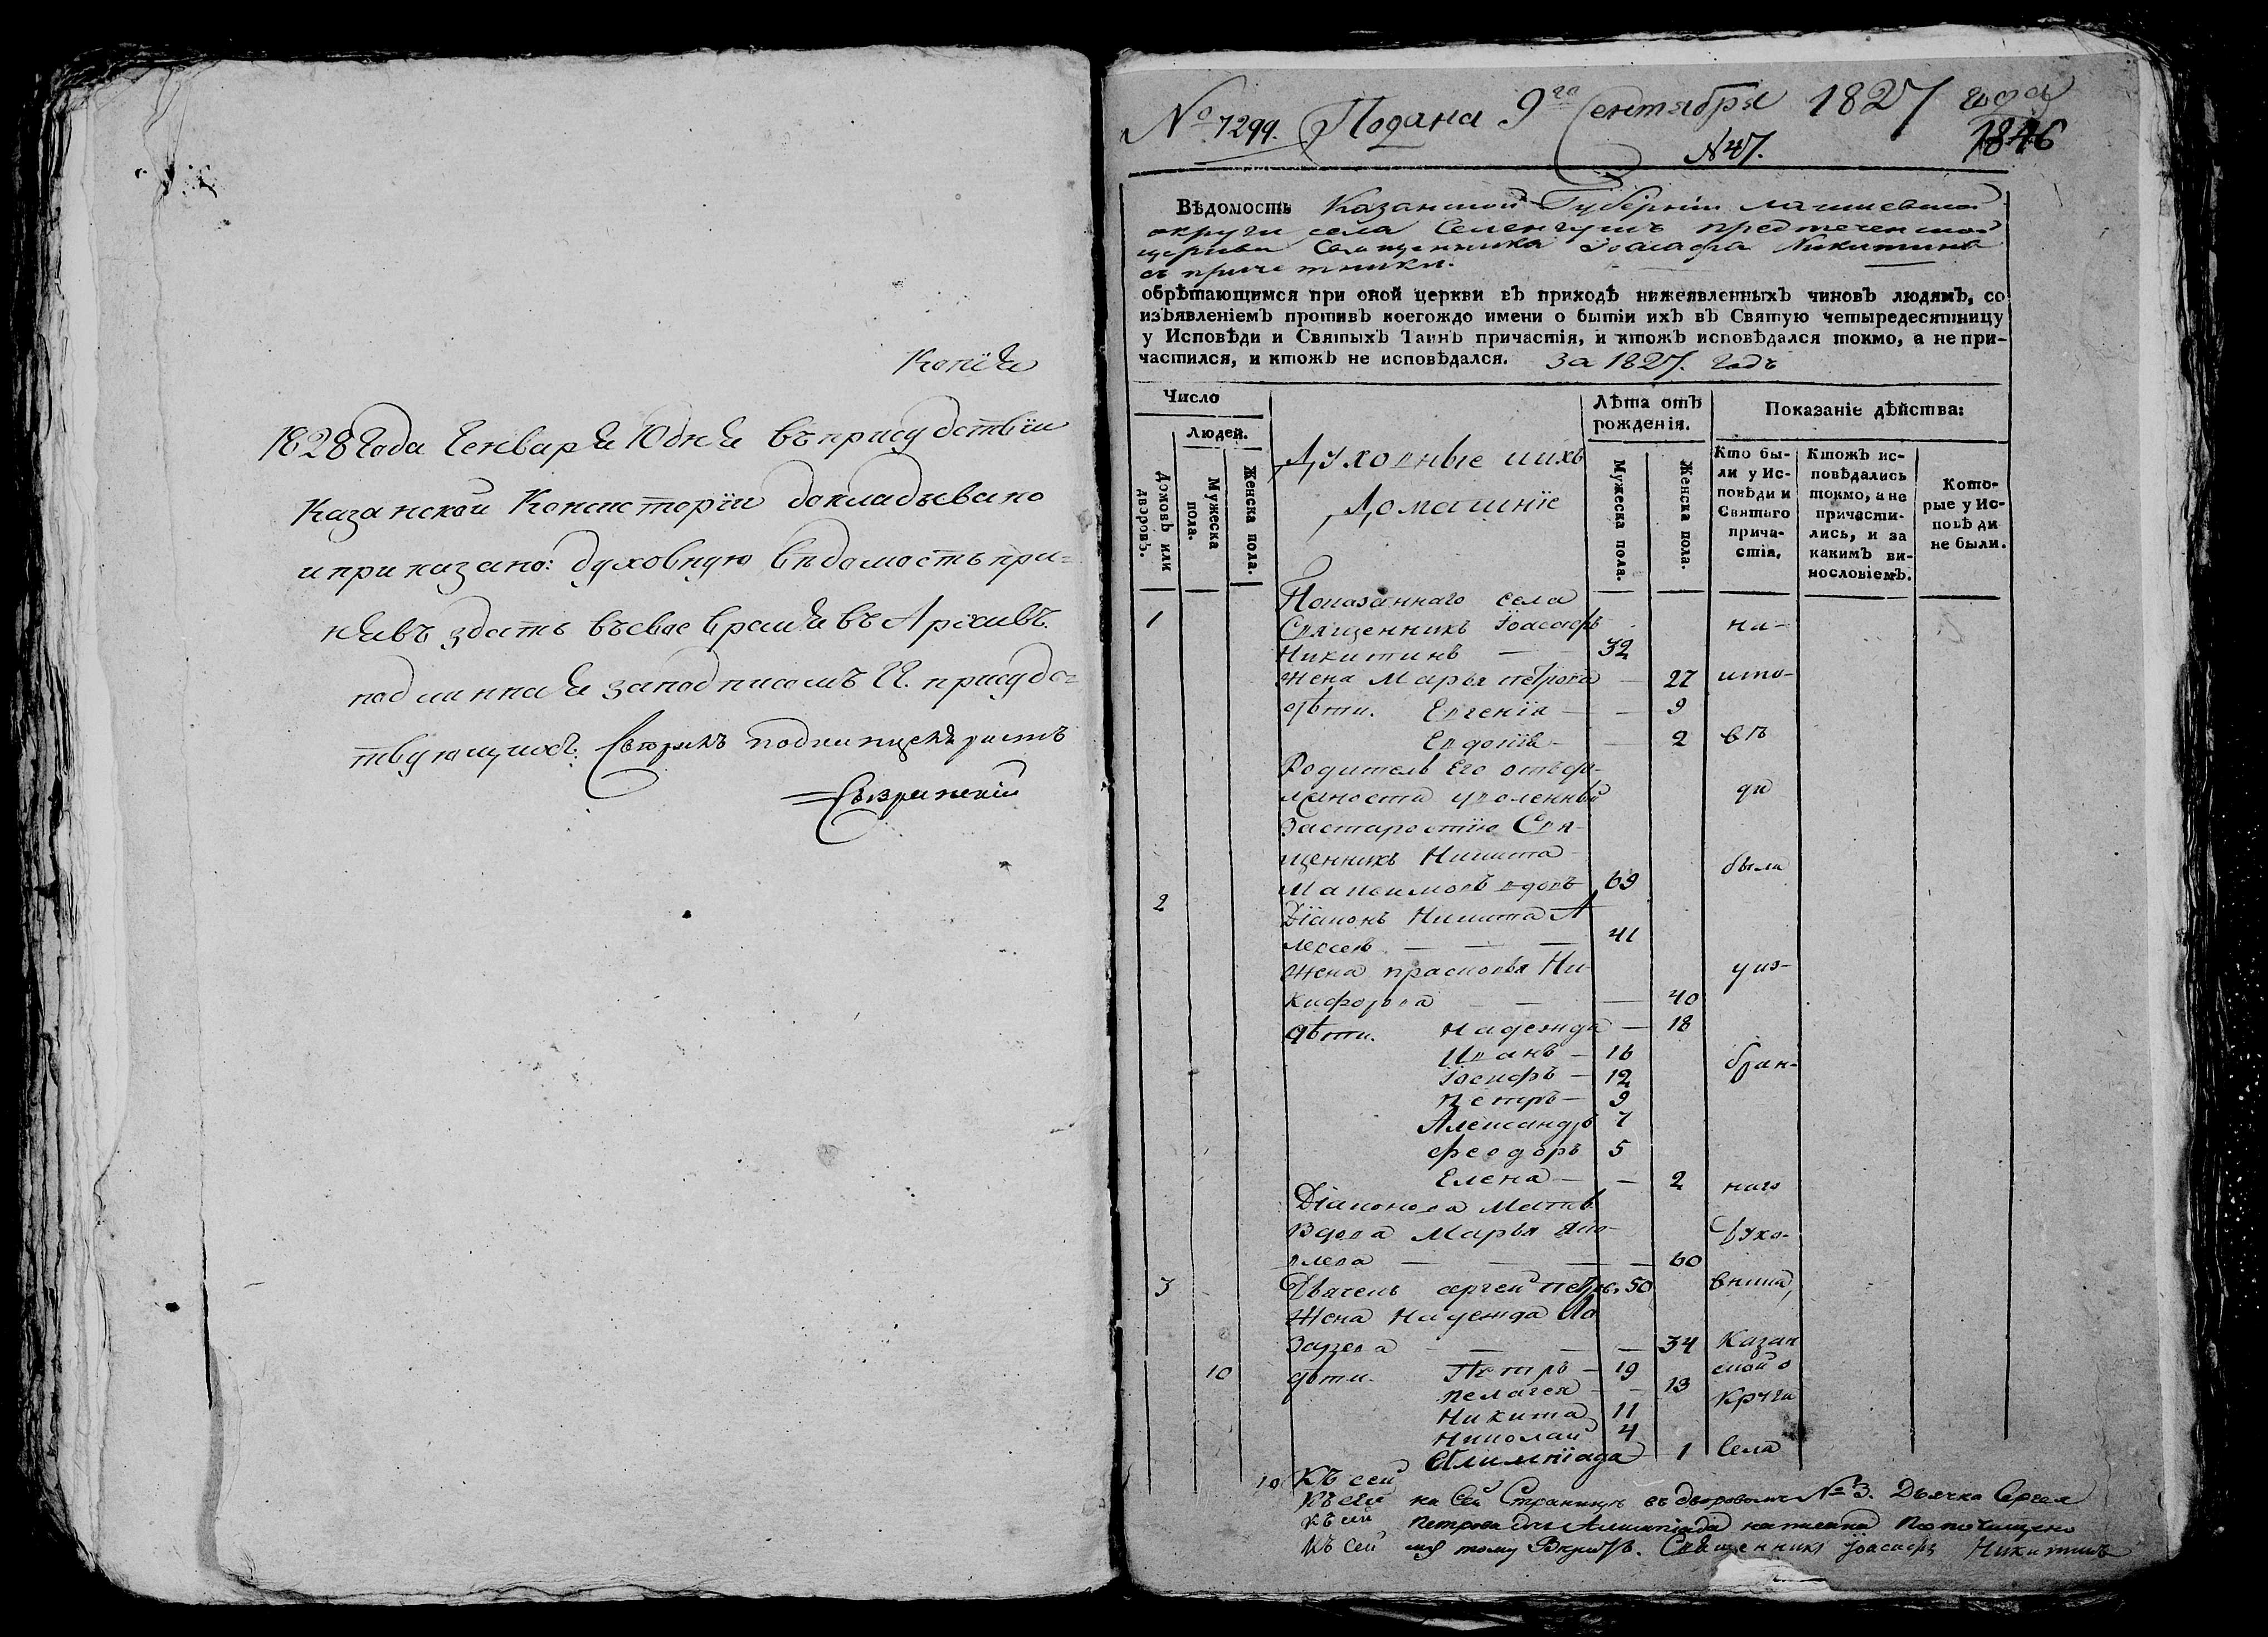 Копiя
1828 Года Генваря 10 дня въ присудствiи
Казанской Консисторiи докладывано
и приказано: духовную вѣдомость при-
нявъ здать въ свое время въ Архивъ
подлинная за подписомъ Г.Г. присудс-
твующихъ. подканцеляристъ
№ 7299. Подана 9го Сентября 1827 года
№ 47. 1846
Вѣдомость Казанской Губернiи Лаишевской
округи села Селенгушъ предтеченской
церкви Священника Iоасафа Никитина
съ причетники.
обрѣтающимся при оной церкви въ приходѣ нижеявленныхъ чиновъ людямъ, со
изъявленiемъ противъ коегождо имени о бытiи ихъ въ Святую четыредесятницу
у Исповѣди и Святыхъ Таинъ причастiя, и ктожъ исповѣдался токмо, а не при-
частился, и ктожъ не исповѣдался. За 1827. Годъ
Число
Людей.
Домовъ или дворовъ.
Мужеска пола.
Женска пола.
Духовные и ихъ
Домашнiе
Лѣта отъ рожденiя.
Мужеска пола.
Женска пола.
Показанiе дѣйства:
Кто бы-
ли у Ис-
повѣди и
Святаго
прича-
стiя.
Ктожъ ис-
повѣдались
токмо, а не
причасти-
лись, и за
какимъ ви-
нословiемъ.
Кото-
рые у Ис-
повѣди
не были.
Показаннаго села
1 Священникъ Iоасафъ ни-
Никитинъ — 32
Жена Марья Петрова — 27 што-
дѣти. Евгенiя — — 9
Евдокiя — — 2 въ
Родитель Его отъ до-
лжности уволенный ду
за старостiю Свя-
щенникъ Никита были
Максимовъ вдовъ 69
2 Дiаконъ Никита А
лексеевъ — — — 41
Жена прасковья Ни- у из-
кифорова — — — 40
дѣти. Надежда — 18
Иванъ — 16
Iосифъ — 12 бран-
петръ — 9
Александръ 7
феодоръ 5
Елена — — 2 наго
Дiаконова Мать
Вдова Марья Яко- духо-
влева — — — — 60
3 Дьячекъ сергей Петров. 50 вника,
Жена Надежда Ла
зарева — — — 34 Казан
10 дѣти. Петръ — 19 ской о
пелагея — — 13 круги
Никита 11
Николай 4
Олимпiада 1 села
10 Къ сей
Къ сей на сей Страницѣ въ дворовомъ № 3. Дьячка Сергея
Къ сей Петрова дочь Алимпiада написана по почищено
Къ сей му тому Вкрутъ. Священникъ Iоасафъ Никитинъ